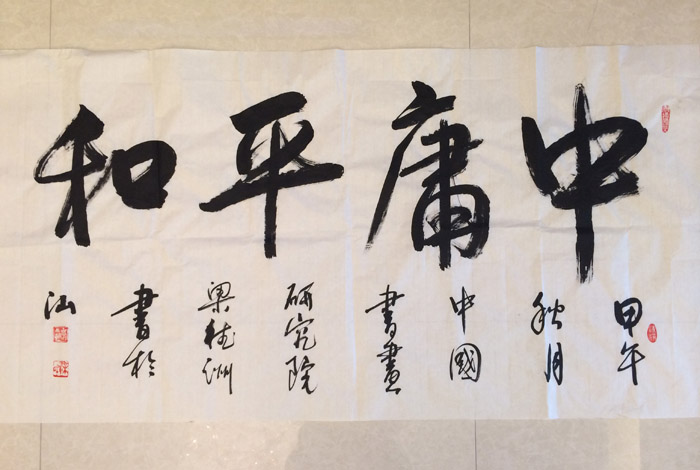 中庸平和
甲午
秋月
中國
書畫
研究院
梁 洲
書於
汕